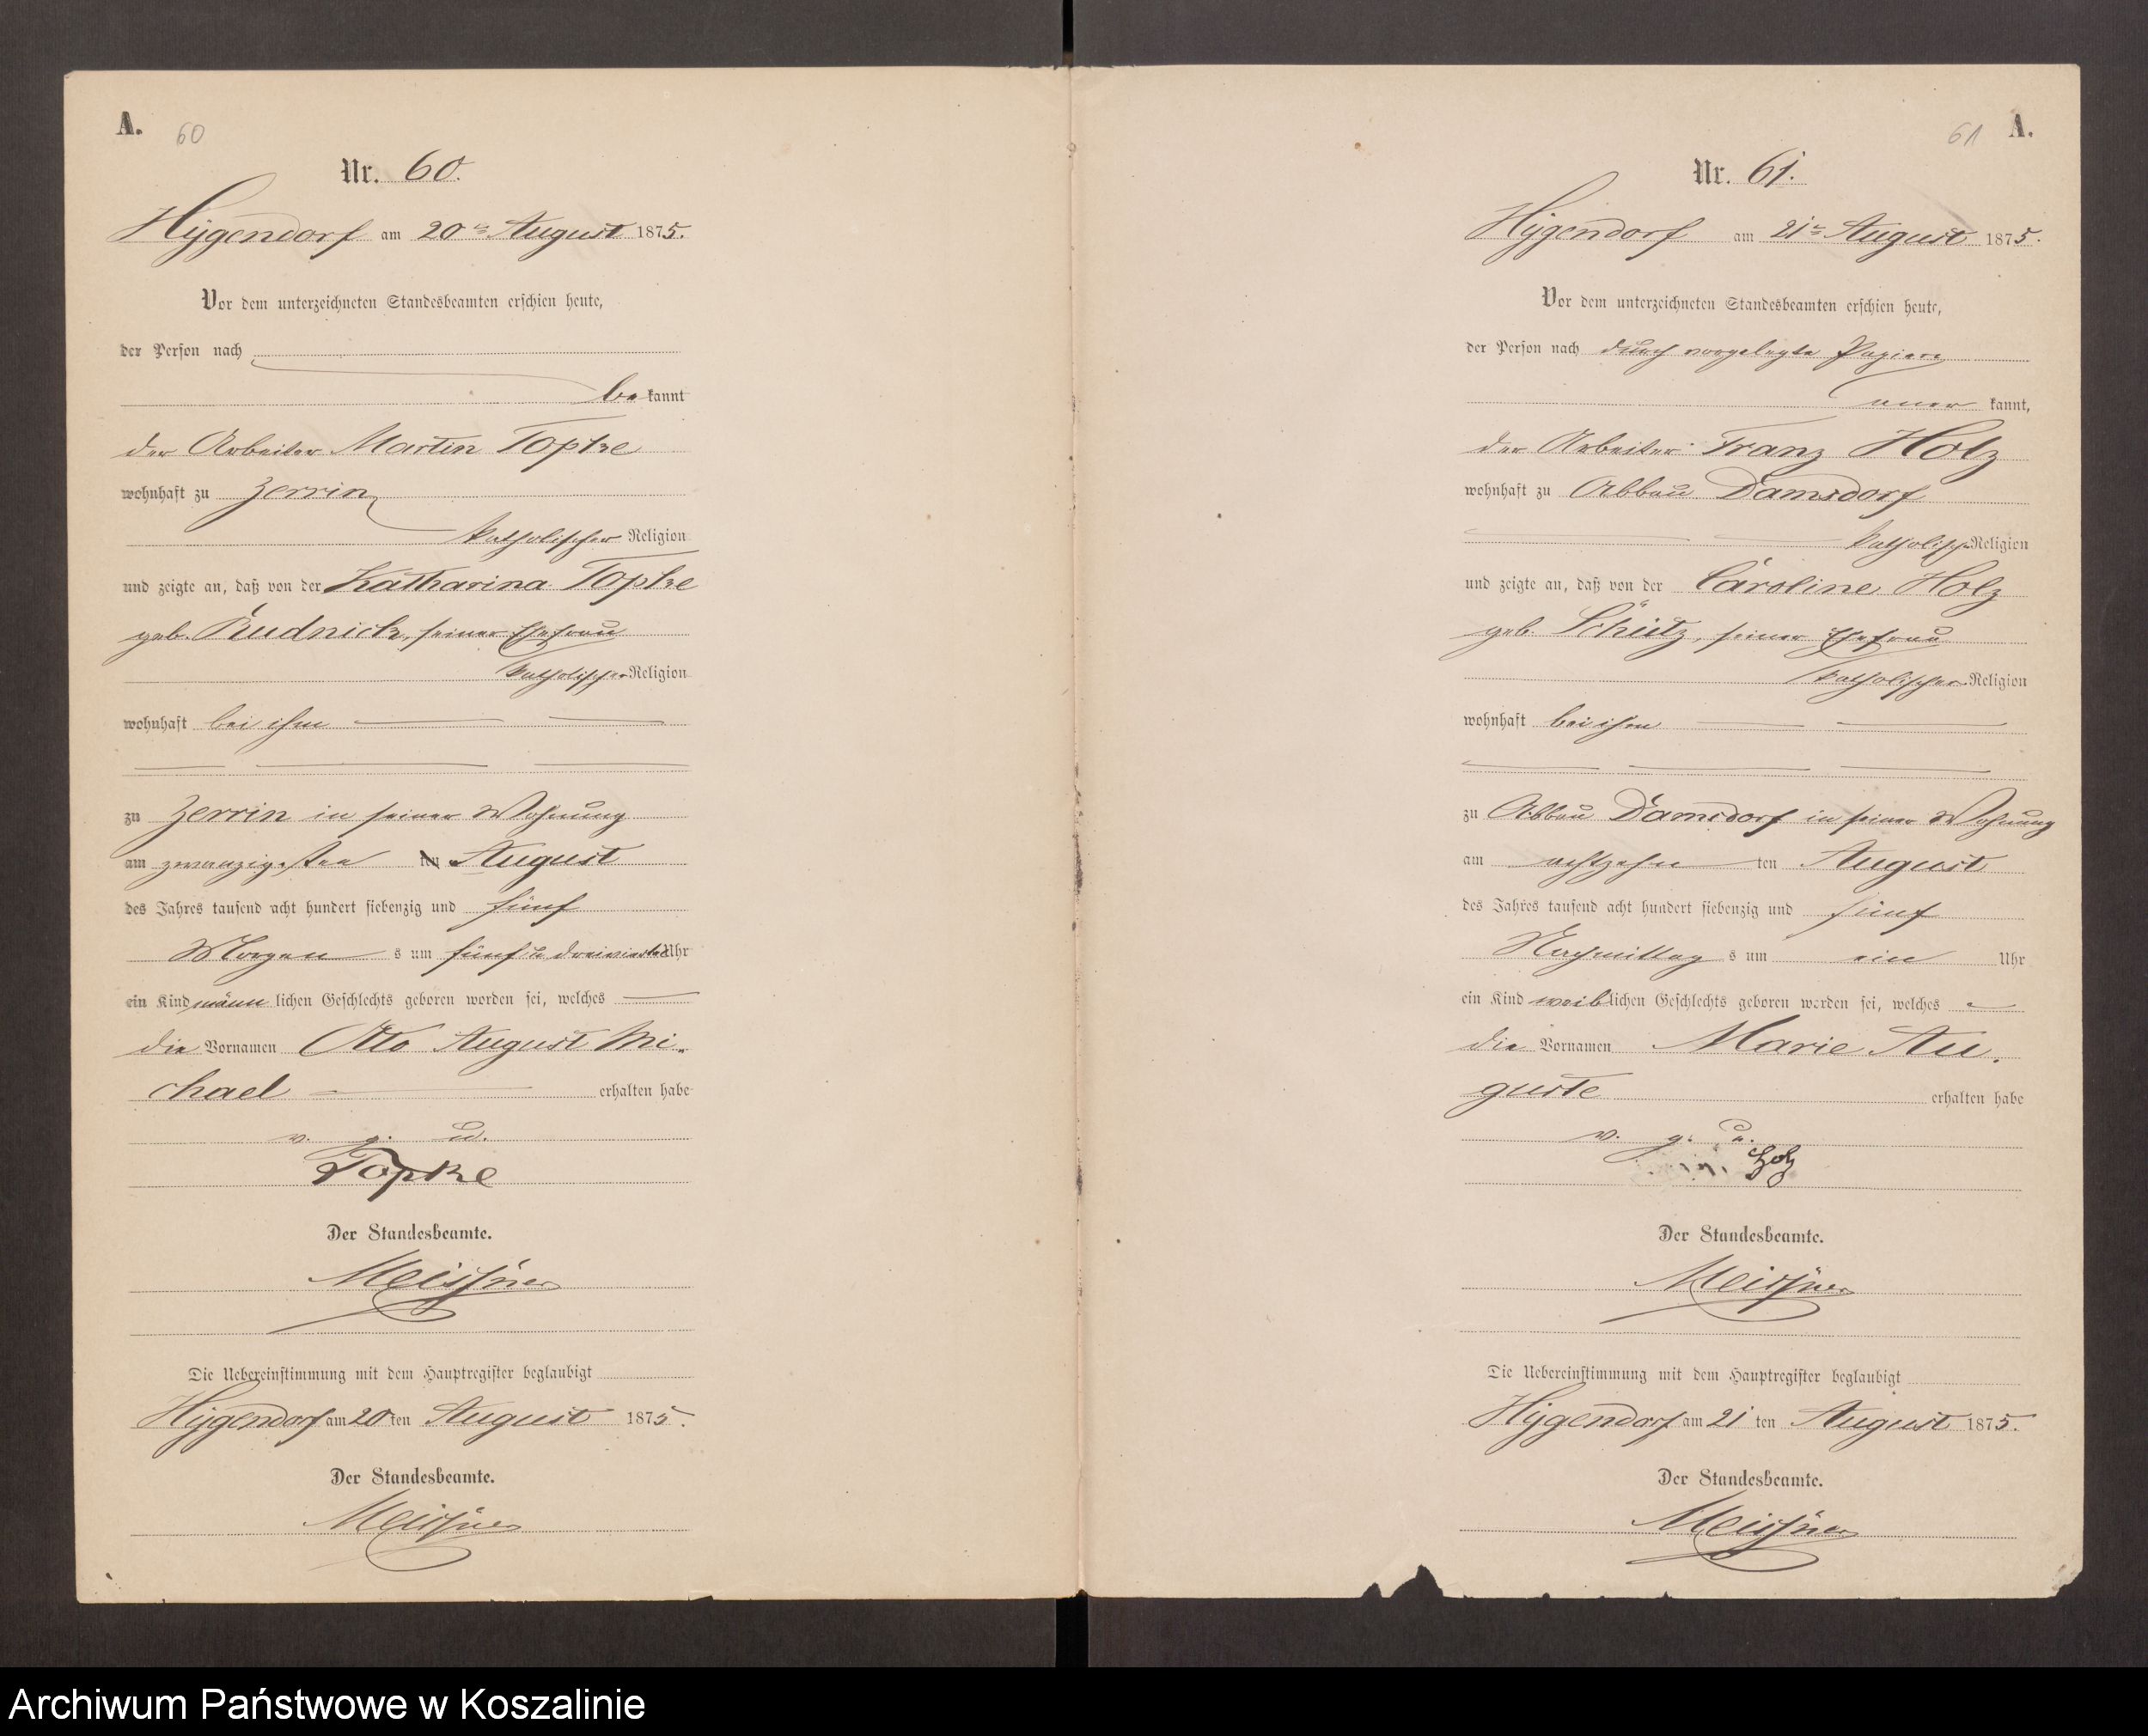 A. 60
Nr. 60.
Hygendorf am 20ten August 1875.
Vor dem unterzeichneten Standesbeamten erschien heute,
der Person nach
bekannt
der Arbeiter Martin Topke
wohnhaft zu Zerrin
katholischer Religion
und zeigte an, daß von der Katharina Topke
geb. Rudnick, seiner Ehefrau
katholischer Religion
wohnhaft bei ihm
zu Zerrin in seiner Wohnung
am zwanzigsten ten August
des Jahres tausend acht hundert siebenzig und fünf
Morgens um fünf u dreiviertel Uhr
ein Kind männlichen Geschlechts geboren worden sei, welches
die Vornamen Otto August Mi-
chael erhalten habe
v. g. u.
Topke
Der Standesbeamte.
Meissner
Die Uebereinstimmung mit dem Hauptregister beglaubigt
Hygendorf am 20 ten August 1875.
Der Standesbeamte.
Meissner
61 A.
Nr. 61.
Hygendorf am 21ten August 1875.
Vor dem unterzeichneten Standesbeamten erschien heute,
der Person nach durch vorgelegte Papiere
anerkannt,
der Arbeiter Franz Holz
wohnhaft zu Abbau Damsdorf
katholisch Religion
und zeigte an, daß von der Caroline Holz
geb. Schütz, seiner Ehefrau
katholischer Religion
wohnhaft bei ihm
zu Abbau Damsdorf in seiner Wohnung
am achtzehn ten August
des Jahres tausend acht hundert siebenzig und fünf
Nachmittags um ein Uhr
ein Kind weiblichen Geschlechts geboren worden sei, welches
die Vornamen Marie Au-
guste erhalten habe
v. g. u.
Holz
Der Standesbeamte.
Meissner
Die Uebereinstimmung mit dem Hauptregister beglaubigt
Hygendorf am 21 ten August 1875.
Der Standesbeamte.
Meissner
Archiwum Państwowe w Koszalinie